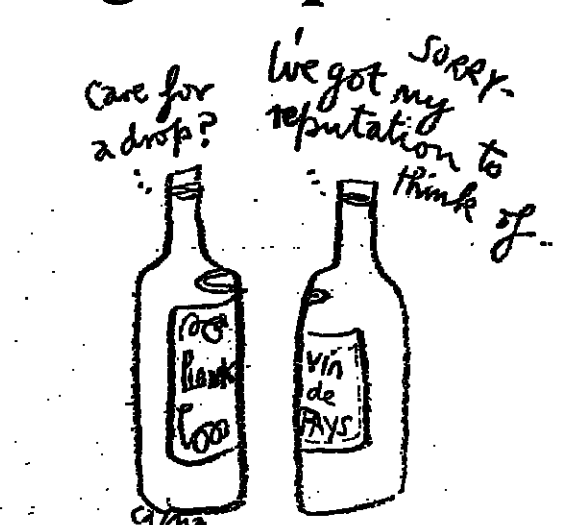 Care for
a drop?
SORRY-
I've got my
reputation to
think of...
Plonk
Vin
de
PAYS